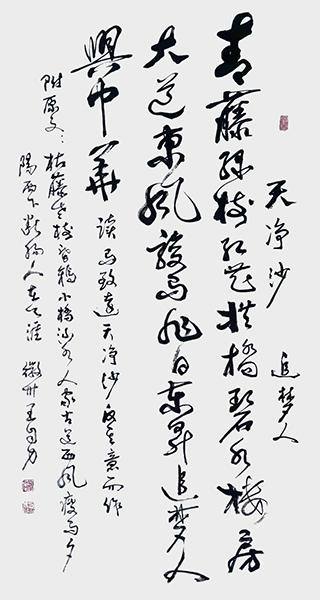 天净沙 追梦人
青藤绿枝红花拱橋碧水楼房
大道東风骏马旭日東昇追梦人
興中華 读马致遠天净沙反其意而作
附原文：枯藤老树昏鸦小橋流水人家古道西风瘦马夕
陽西下断肠人在天涯 徽州王